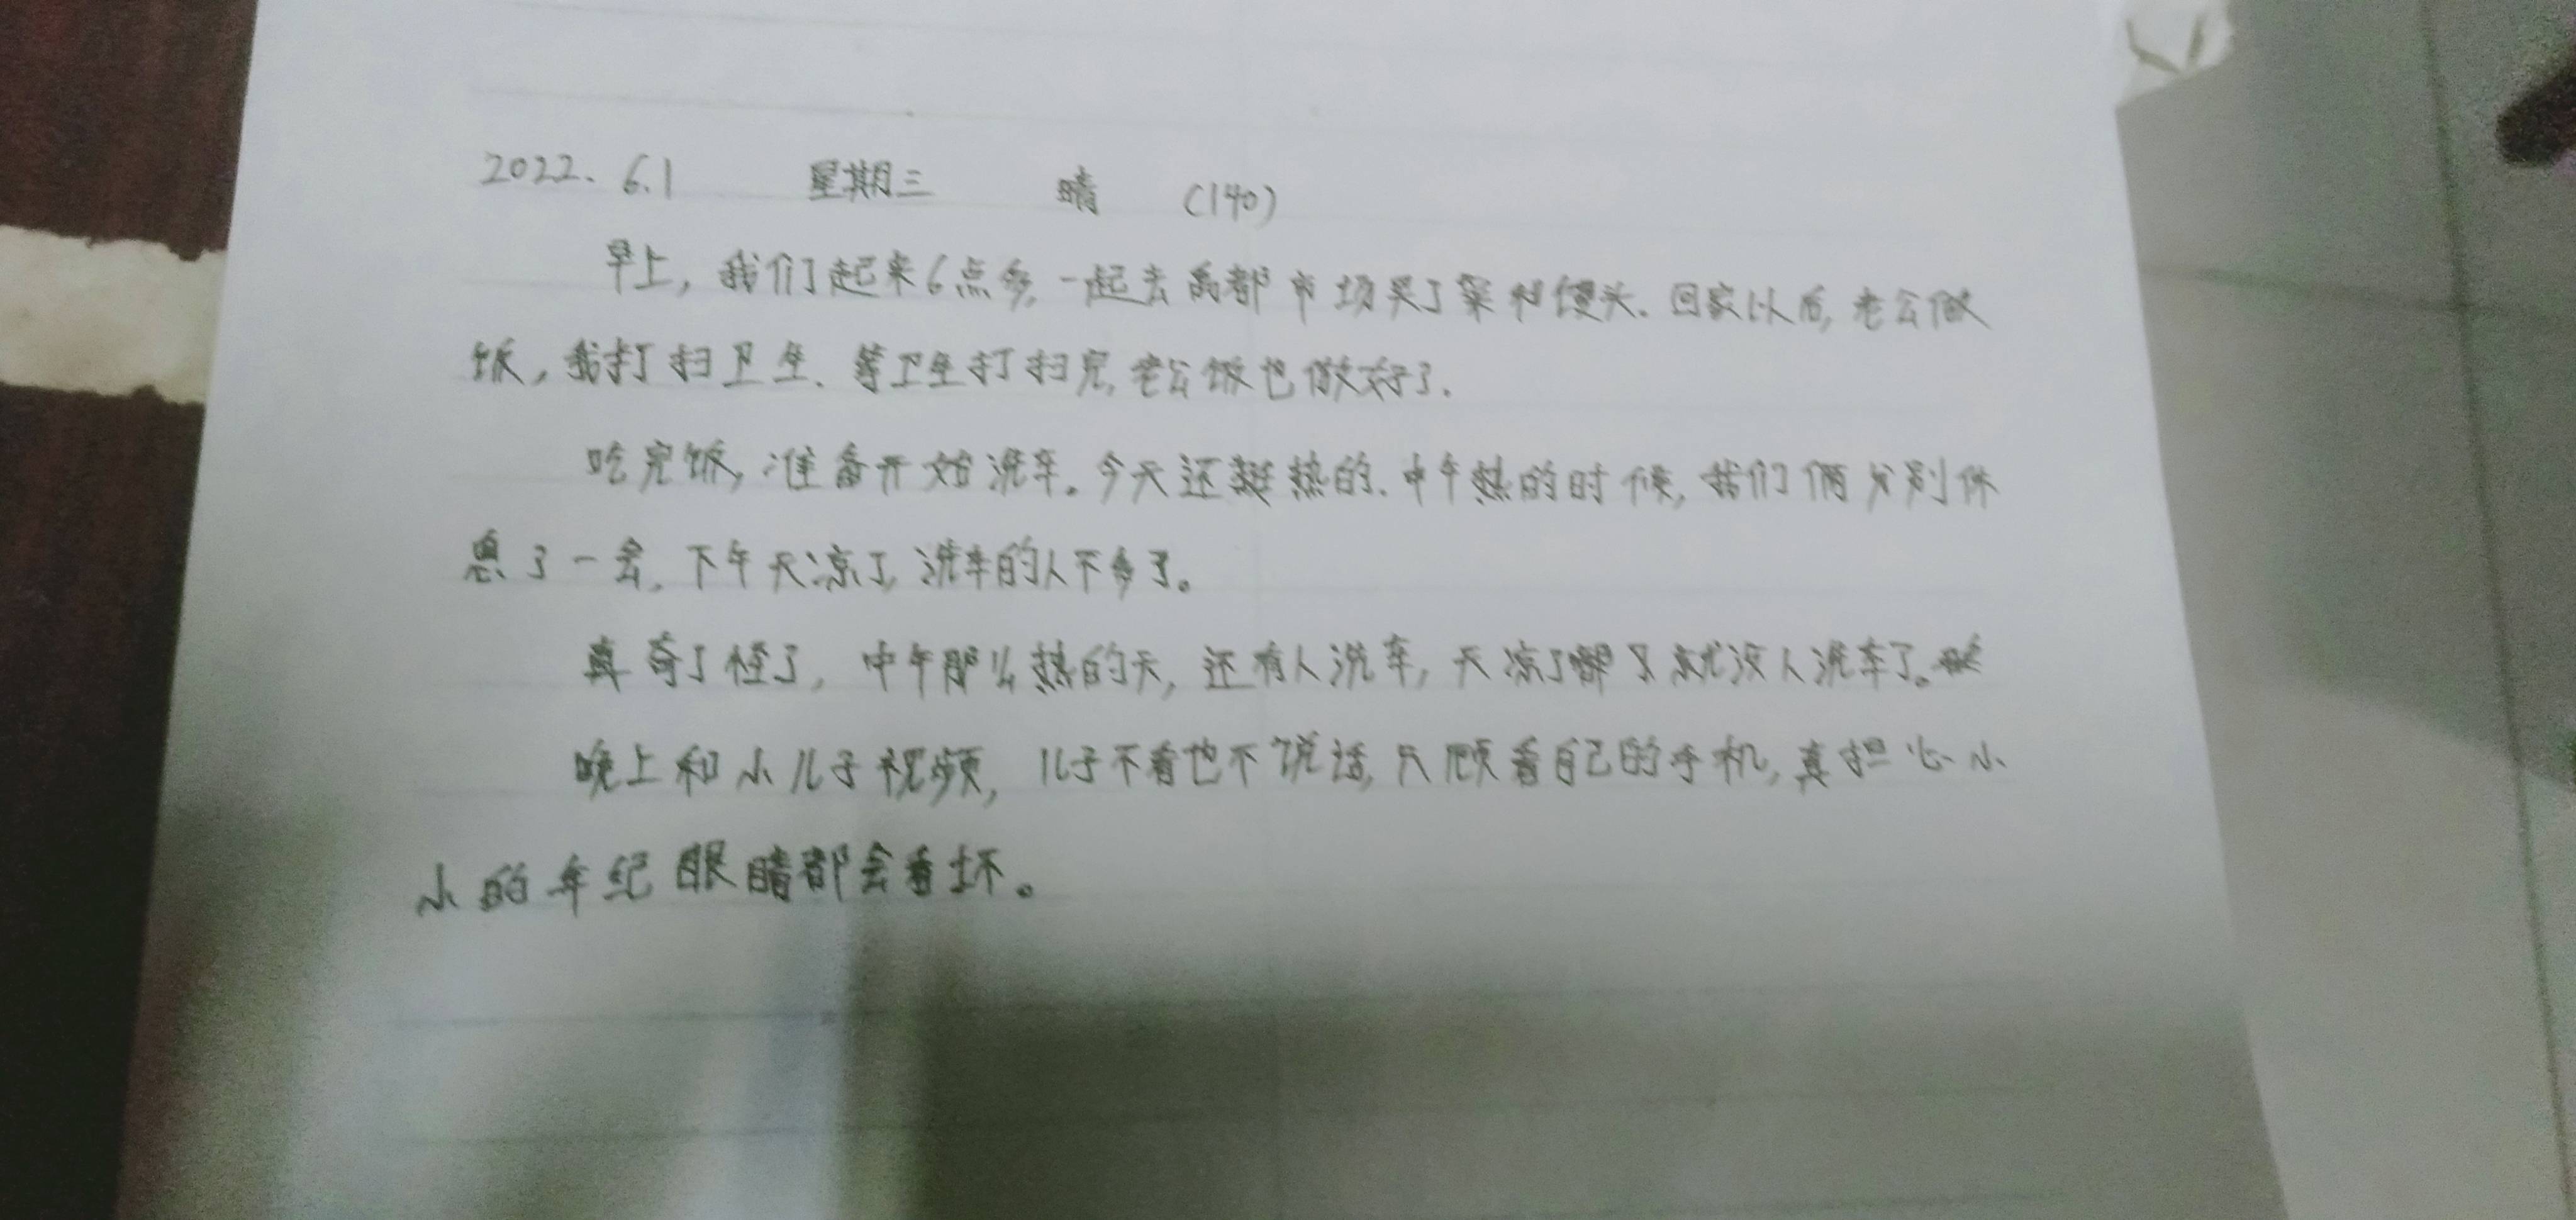 2022. 6.1 星期三 晴 (140)
早上，我们起来6点多，一起去禹都市场买了菜和馒头．回家以后，老公做
饭，我打扫卫生．等卫生打扫完，老公饭也做好了．
吃完饭，准备开始洗车。今天还挺热的．中午热的时候，我们俩分别休
息了一会．下午天凉了，洗车的人不多了。
真奇了怪了，中午那么热的天，还有人洗车，天凉了就没人洗车了。
晚上和小儿子视频，儿子不看也不说话，只顾看自己的手机，真担心小
小的年纪眼睛都会看坏。